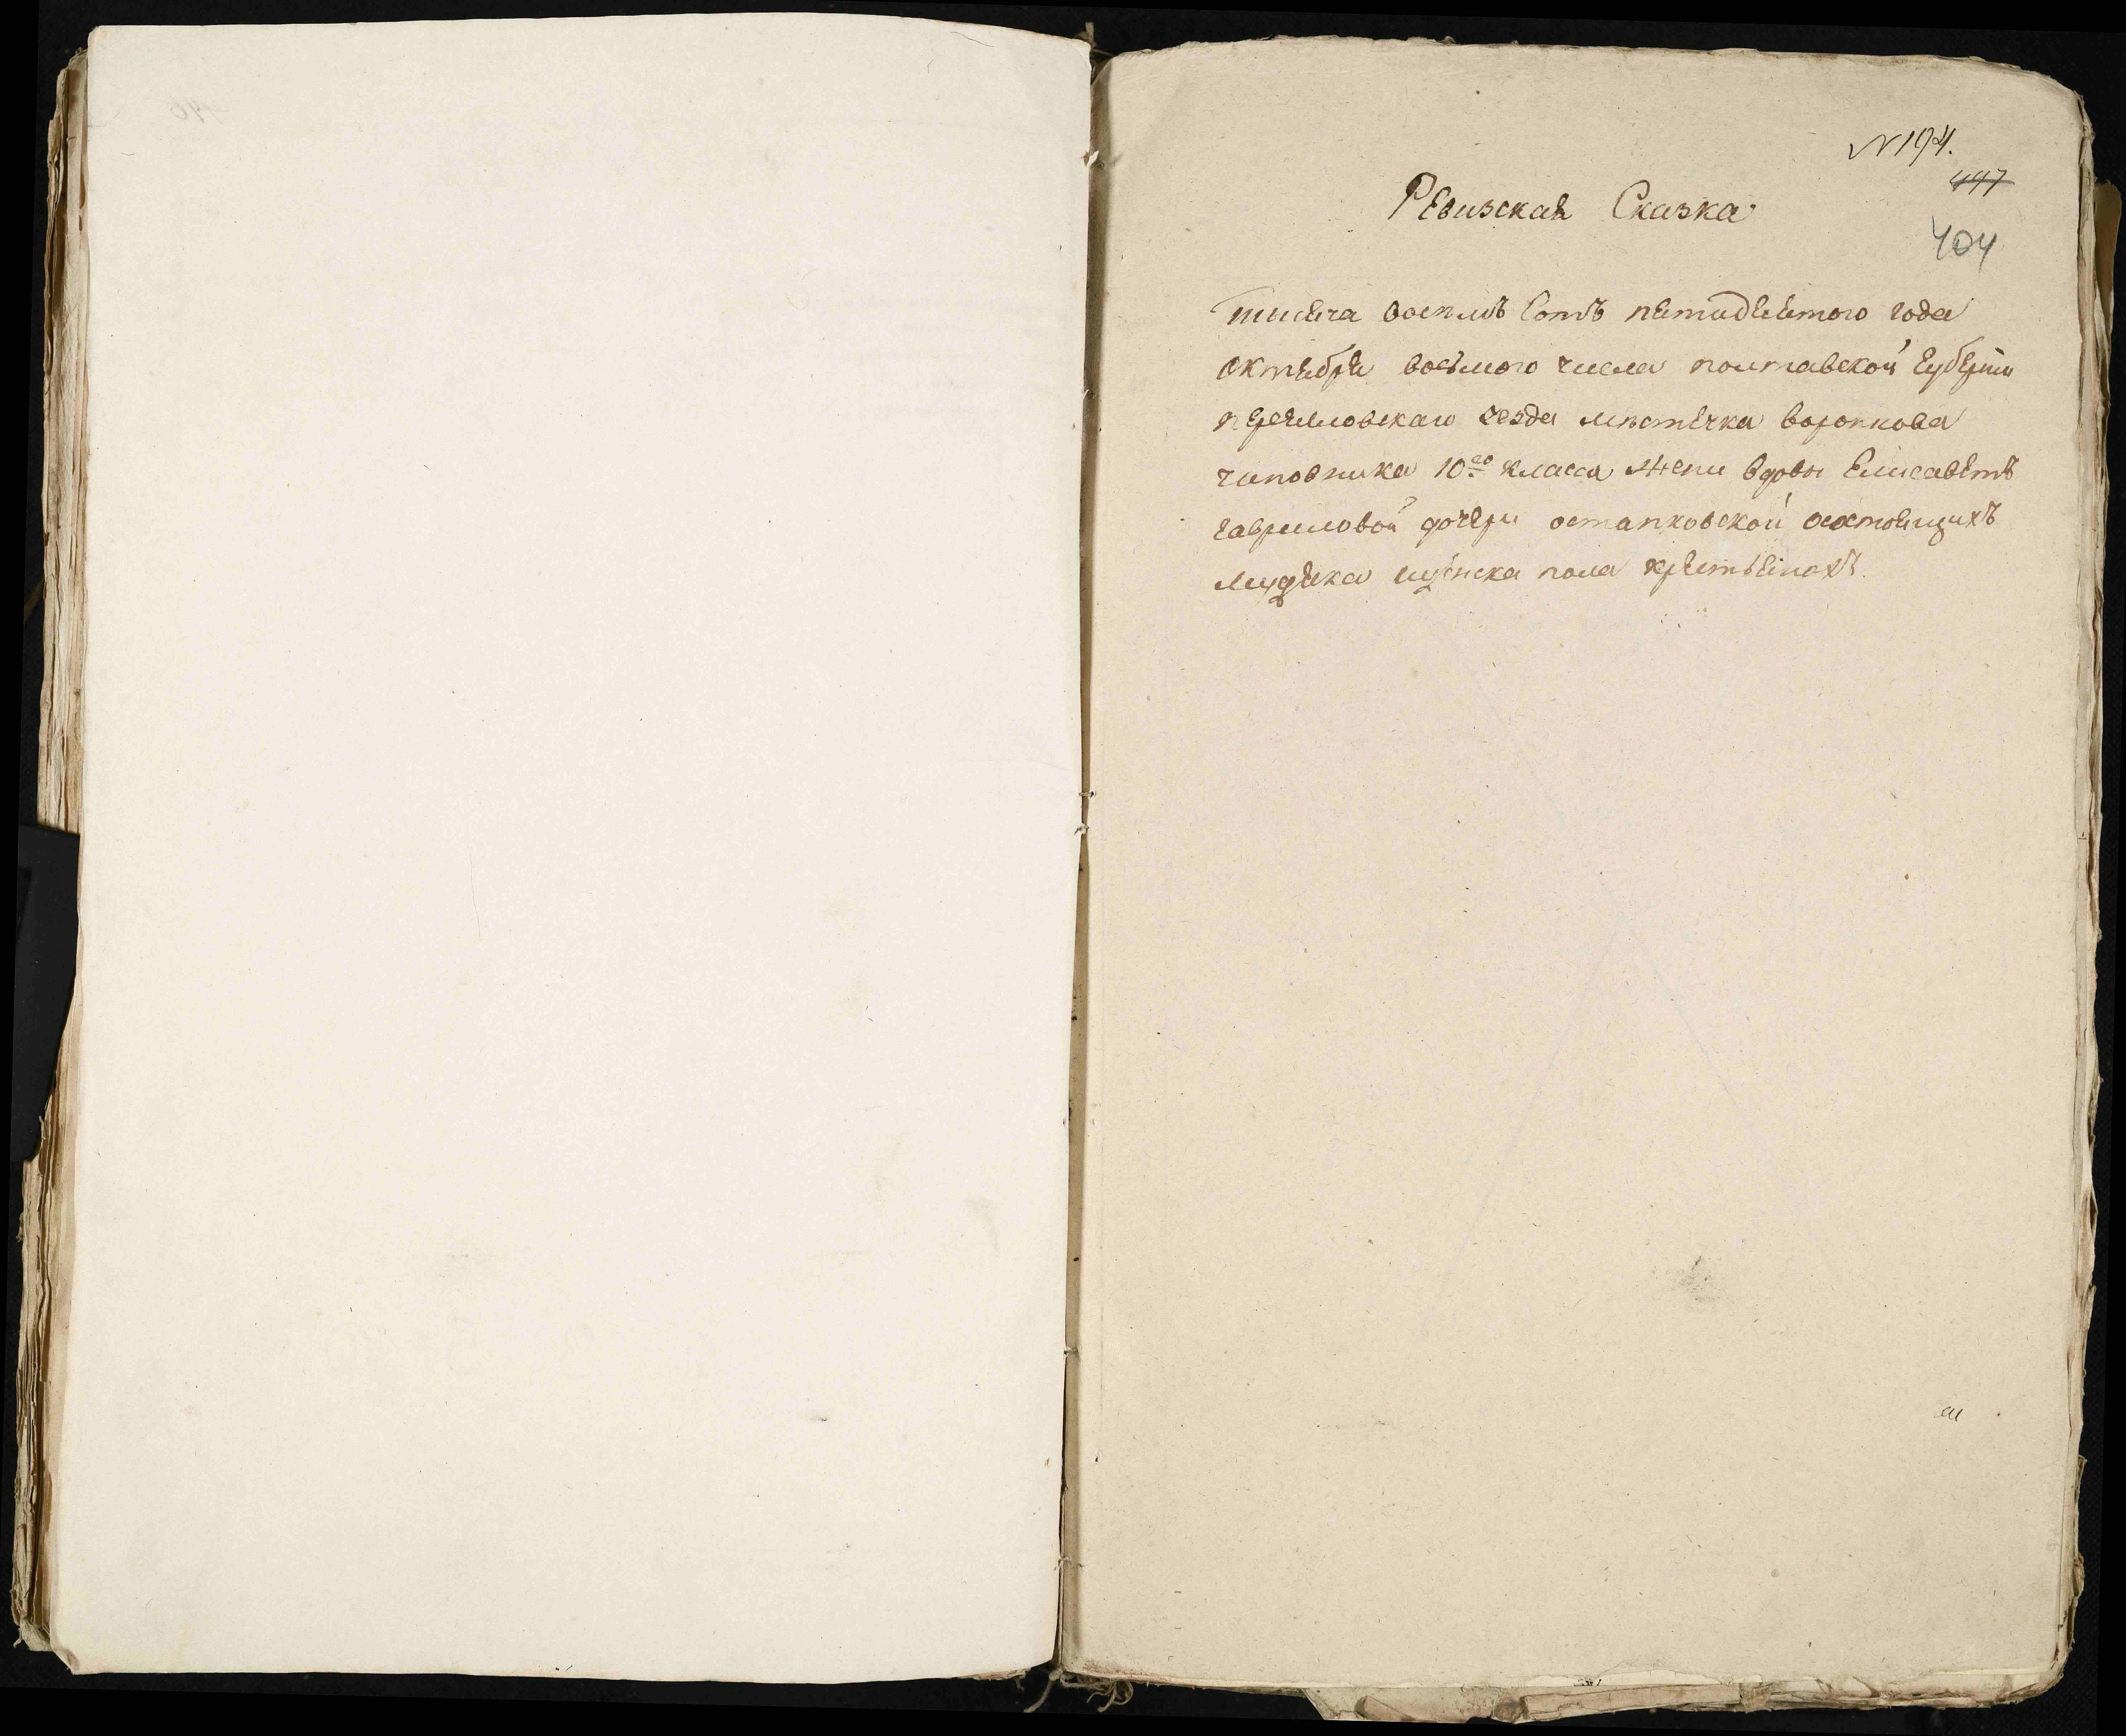 N 194.
447
Ревизская Сказка
404
тисяча восемъ Сотъ пятидесятого года
октября восьмого числа полтавской губернии
переяловскаго уезда мѣстечка воронкова
чиновника 10го класса жени вдовы Елисаветъ
гавриловой дочери остапковской состоящихъ
мужска пола крестьянахъ.